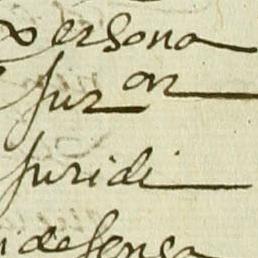 persona
Juron
Juridi
defensa